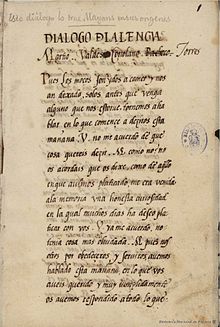 Este diálogo lo trae Mayans en sus orígenes
DIALOGO D LA LENGVA
Martio, Valdes, Coriolano, Pacheco. Torres
Pues los moços son ydos a comer y nos
an dexado solos antes que venga
alguno que nos estorue, tornemos a ha
blar en lo que comence a deziros esta
mañana V. no me acuerdo de que
cosa quereis dezir. M. como no? no
os acordais que os dixe, como de aq̃llo
en que auiamos platicado me era venida
a la memoria vna honesta curiosidad
en la qual muchos dias ha deseo pla
ticar con vos. V. ya me acuerdo, no
tenia cosa mas oluidada. M. pues nos
otros por obedeceros y seruiros auemos
hablado esta mañana en lo que vos
aueis querido y muy cumplidamente
os auemos respondido a todo lo que
Biblioteca Nacional de España